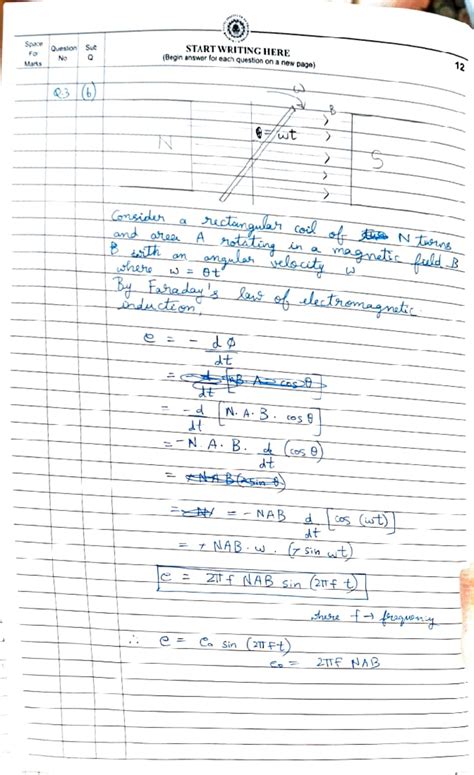 START WRITING HERE
(Begin answer for each question on a new page)
Space For Marks
Question No
Sub Q
12
Q3 (b)
ω
B
θ = ωt
N
S
Consider a rectangular coil of N turns
and area A rotating in a magnetic field B
B with an angular velocity ω
where ω = θt
By Faraday's law of electromagnetic
induction,
e = - dφ/dt
= d/dt [NBA cos θ]
= -d/dt [N.A.B. cos θ]
= -N.A.B. d/dt (cos θ)
= +NAB(+sin θ)
= -N = -NAB d/dt [cos (ωt)]
= + NAB.ω. (+ sin ωt)
e = 2πf NAB sin (2πf t)
where f → frequency
∴ e = e₀ sin (2πft)
e₀ = 2πf NAB